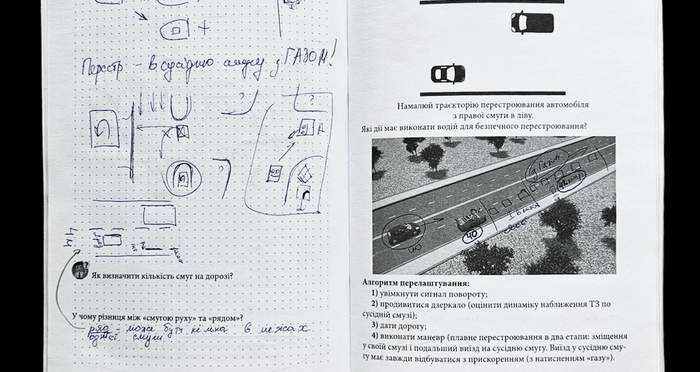 Перестр - в сусідню смугу з ГАЗОМ!
Як визначити кількість смуг на дорозі?
У чому різниця між «смугою руху» та «рядом»?
ряд - може бути кілька в межах
одної смуги
Намалюй траєкторію перестроювання автомобіля
з правої смуги в ліву.
Які дії має виконати водій для безпечного перестроювання?
40
Алгоритм перелаштування:
1) увімкнути сигнал повороту;
2) продивитися дзеркало (оцінити динаміку наближення ТЗ по
сусідній смузі);
3) дати дорогу;
4) виконати маневр (плавне перестроювання в два етапи: зміщення
у своїй смузі і подальший виїзд на сусідню смугу. Виїзд у сусідню сму-
гу має завжди відбуватися з прискоренням (з натисненням «газу»).